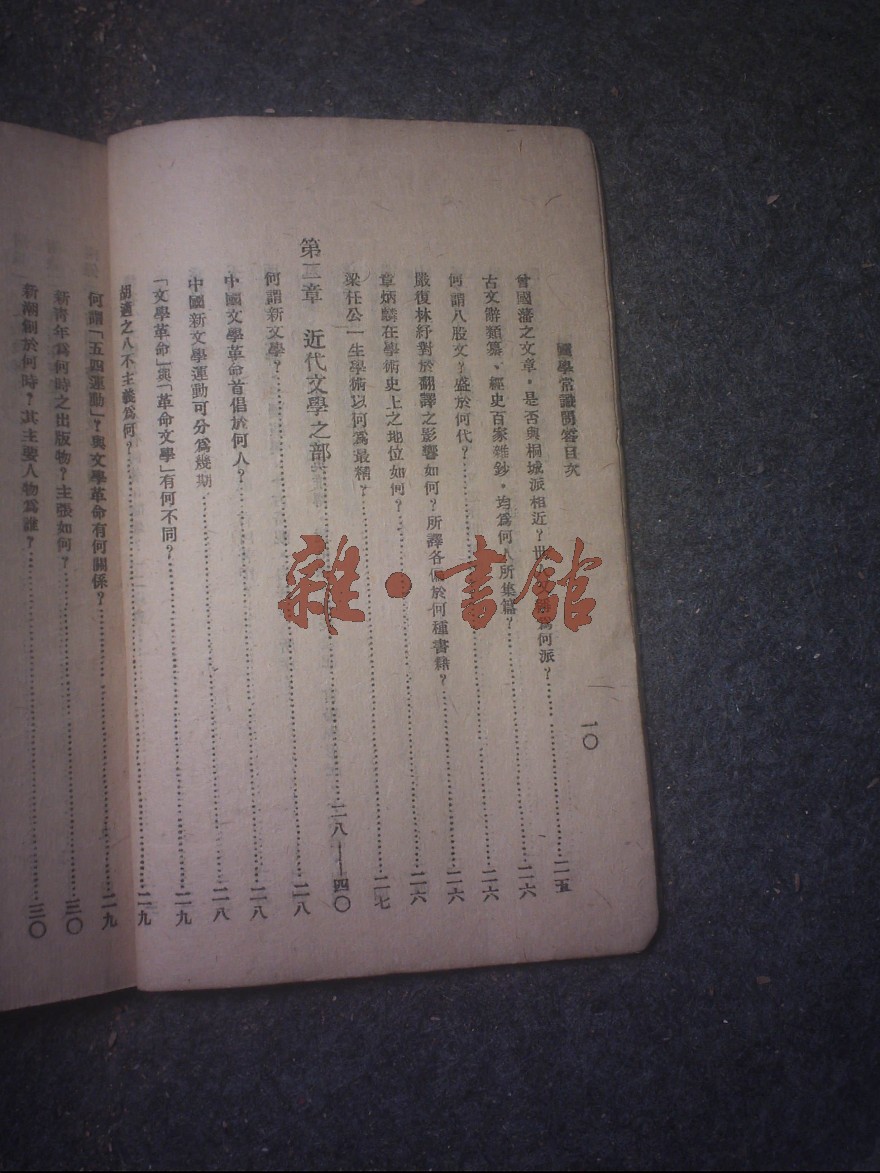 國學常識問答目次
一〇
曾國藩之文章，是否與桐城派相近？世 何派？……二五
古文辭類纂、經史百家雜鈔，均爲何人所集篇？……二六
何謂八股文？盛於何代？……二六
嚴復林紓對於翻譯之影響如何？所譯各偏於何種書籍？……二六
章炳麟在學術史上之地位如何？……二六
梁任公一生學術以何爲最精？……二七
第二章 近代文學之部……二八——四〇
何謂新文學？……二八
中國文學革命首倡於何人？……二八
中國新文學運動可分爲幾期……二八
「文學革命」與「革命文學」有何不同？……二九
胡適之八不主義爲何？……二九
何謂「五四運動」？與文學革命有何關係？……二九
新青年爲何時之出版物？主張如何？……三〇
新潮創於何時？其主要人物爲誰？……三〇
雜·書館